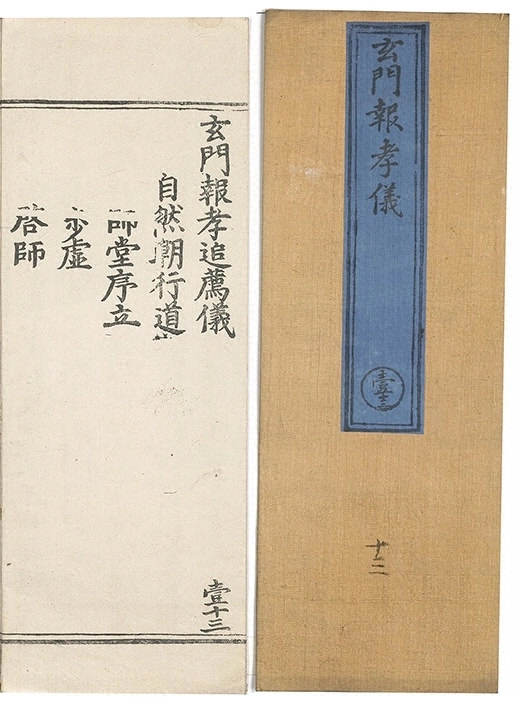 玄門報孝儀
壹十三
十二
玄門報孝追薦儀
壹十三
自然朝行道
師堂序立
步虛
啓師